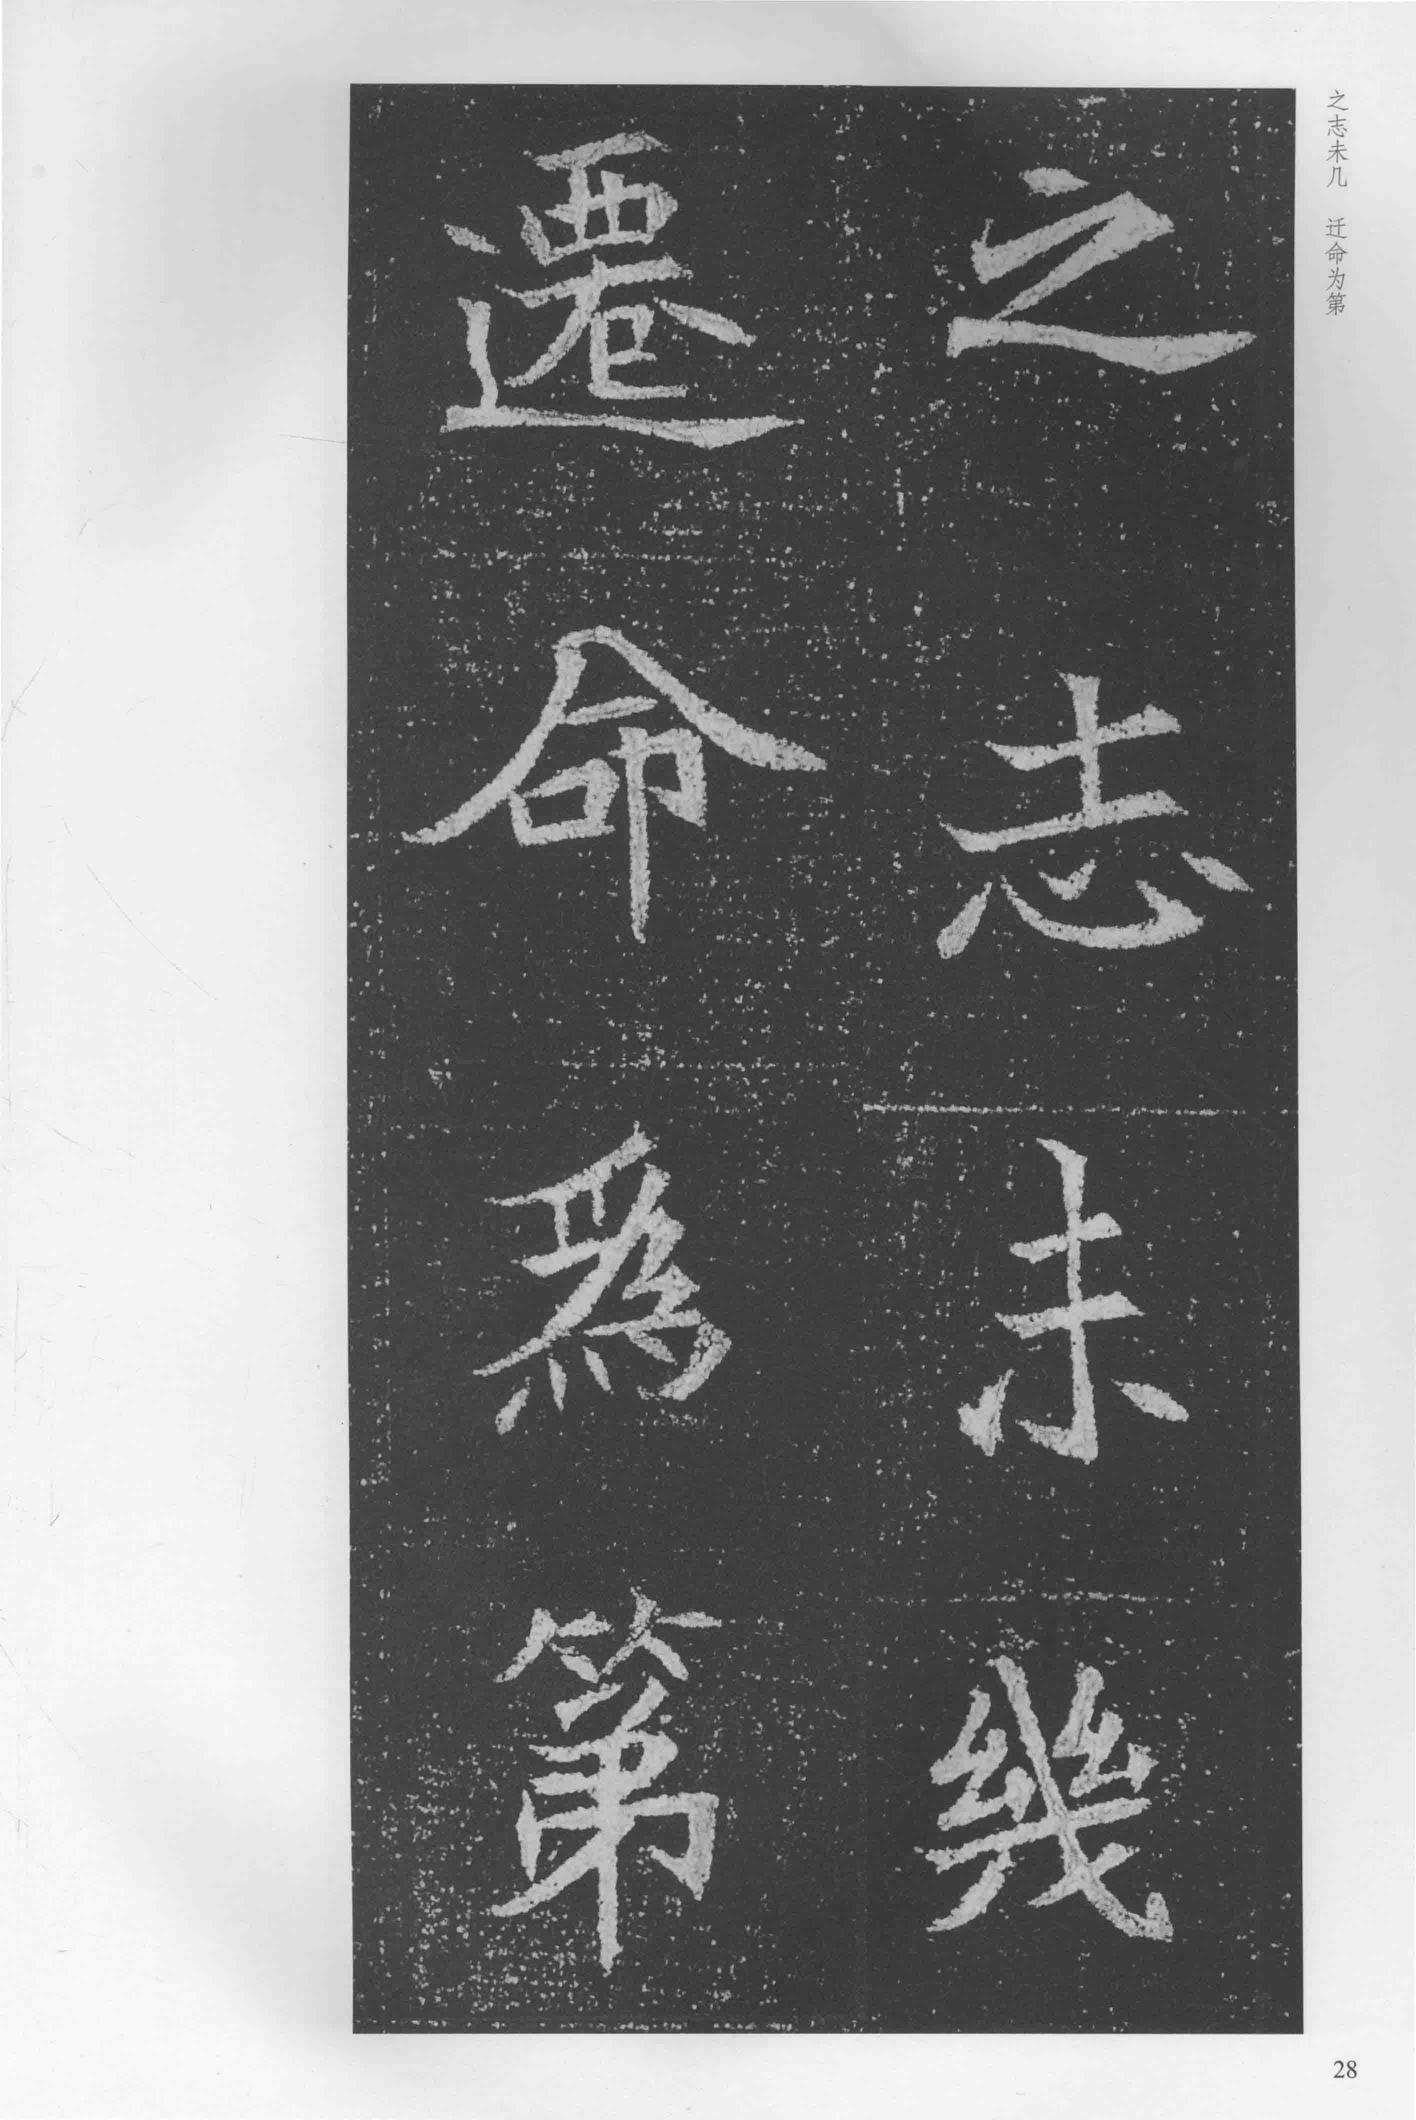 之志未几 迁命为第
之志未幾
遷命爲第
28